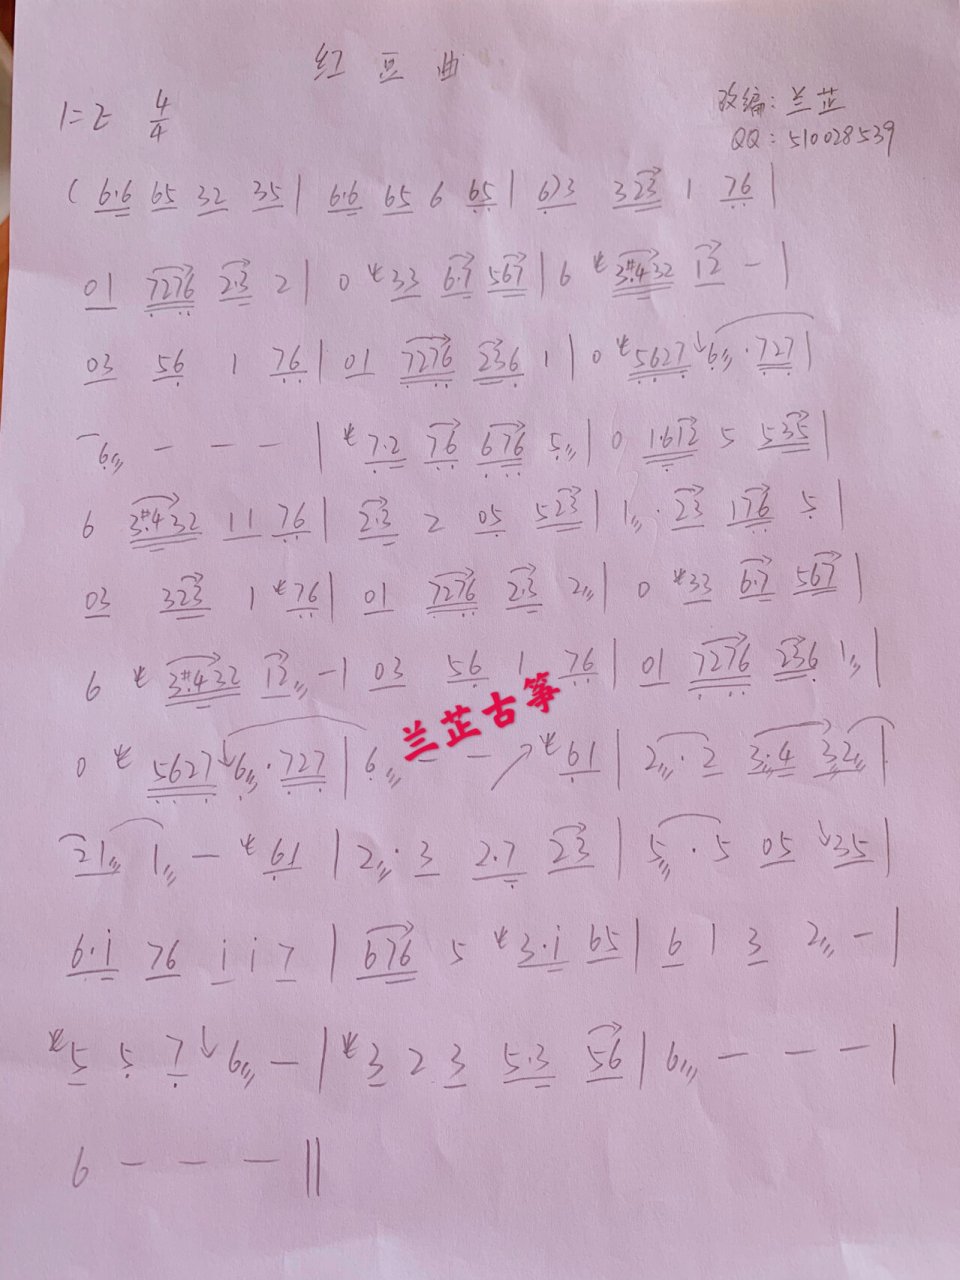 红豆曲
1=E 4/4
改编：兰芷
QQ：510028539
( 6·6 65 32 35 | 6·6 65 6 65 | 6)3 323 1 76 |
01 7276 2·3 2 | 0 *33 6·7 567 | 6 *3#432 12 - |
03 56 1 76 | 01 7276 236 1 | 0 *5627 ↓6// ·727 |
6// - - - | *7·2 76 676 5// | 0 1·612 5 535 |
6 3#432 11 76 | 2·3 2 05 523 | 1// ·23 176 5 |
03 323 1 *76 | 01 7276 2·3 2// | 0 *33 6·7 567 |
6 *3#432 12// - | 03 56 1 76 | 01 7276 236 1// |
兰芷古筝
0 *5627 ↓6// ·727 | 6// - - ↗*61 | 2// ·2 3//·4 32// |
21// 1// - *61 | 2// ·3 2·7 23 | 5// ·5 05 ↓35 |
6·i 76 i i 7 | 676 5 *3·i 65 | 6 1 3 2// - |
*5 5 7 ↓6// - | *3 2 3 5·3 56 | 6// - - - |
6 - - - ‖